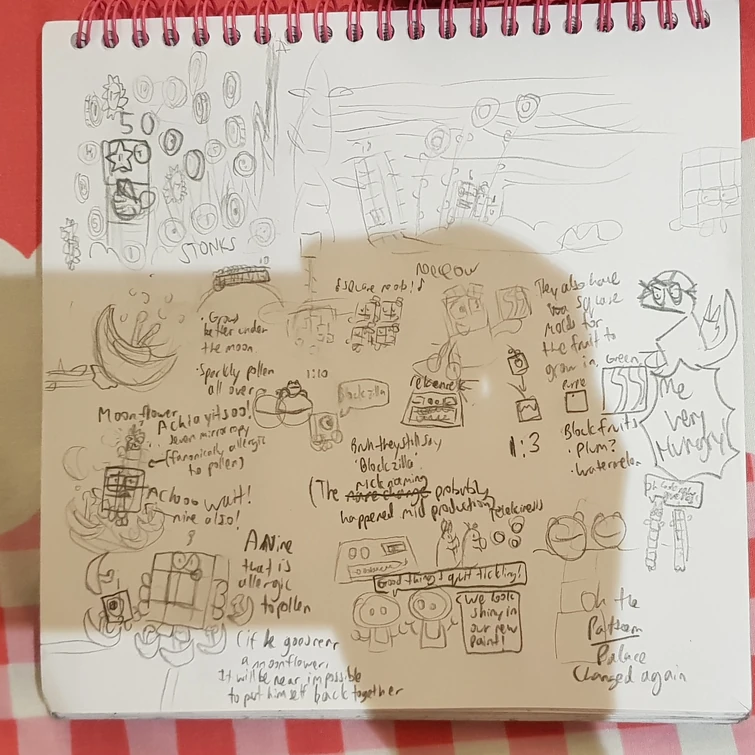 50
STONKS
10
• Grows
better under
the moon
• Sparkly pollen
all over
1:10
Blockzilla
Moonflower
Achiayitsoo!
seven mirror copy
(fanonically allergic
to pollen)
Achoo wait!
nine also!
A Nine
that is
allergic
to pollen
(if he goes near
a moonflower,
It will be near impossible
to put himself back together
Bruh they still say
'Blockzilla'
nick naming
(The probably
happened mid production)
1:3
They also have
square
molds for
the fruit to
grow in.
Green
Purple
• Block fruits
• Plum?
• Watermelon
Me
very
Hungry!
Good things quit tickling!
We look
shiny in
our new
paint!
Oh the
Pattern
Palace
Changed again